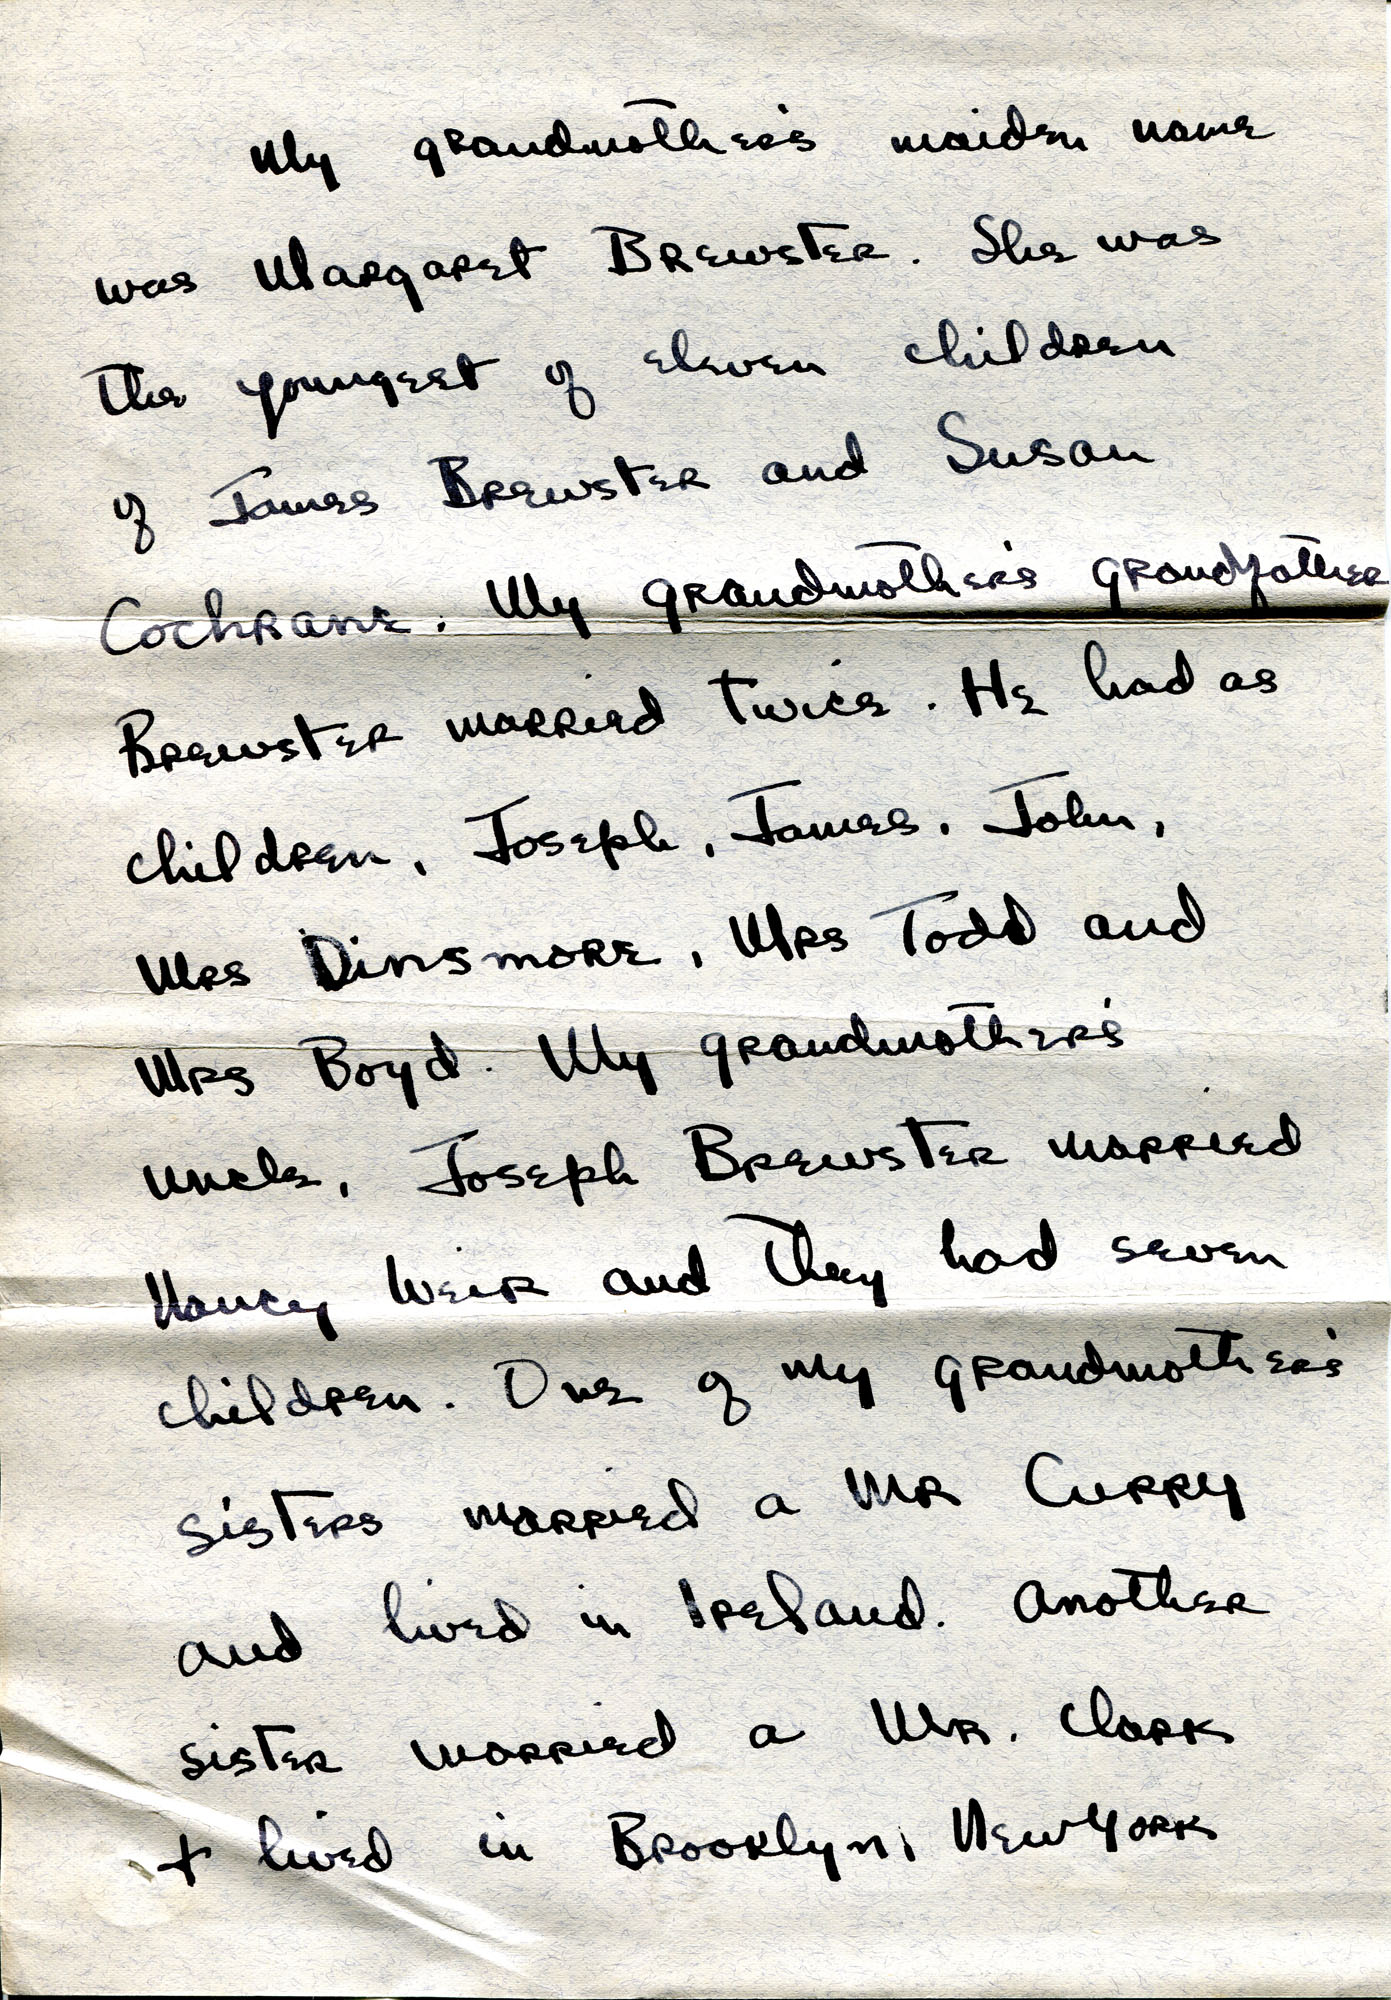 My grandmother's maiden name
was Margaret Brewster. She was
the youngest of eleven children
of James Brewster and Susan
Cochrane. My grandmother's grandfather
Brewster married twice. He had as
children, Joseph, James, John,
Mrs Dinsmore, Mrs Todd and
Mrs Boyd. My grandmother's
uncle, Joseph Brewster married
Nancy Weir and they had seven
children. One of my grandmother's
sisters married a Mr Curry
and lived in Ireland. Another
sister married a Mr. Clark
+ lived in Brooklyn, New York